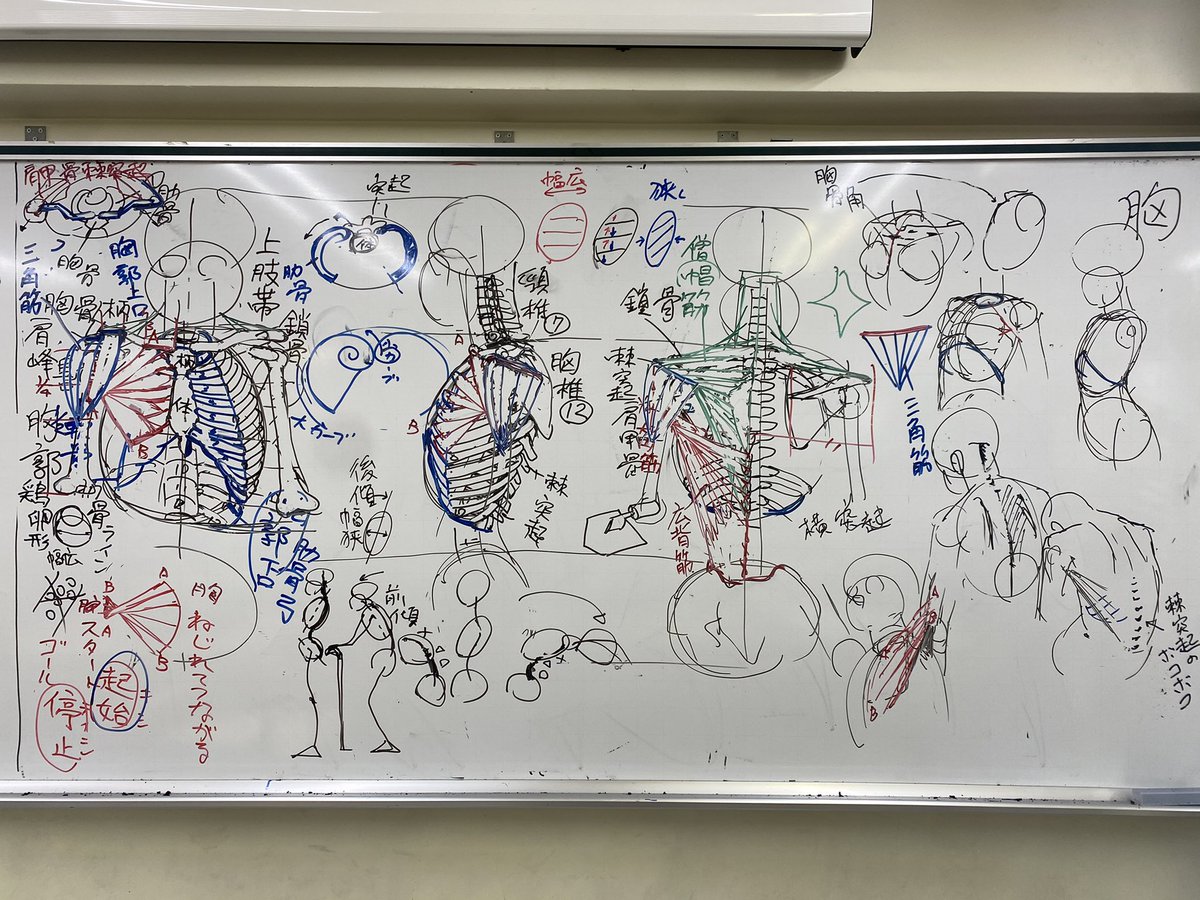 肩甲骨棘突起
肋骨
三角筋
胸骨
胸骨柄
胸郭上口
肩峰
胸郭
鶏卵形
幅広
上肢帯
鎖骨
肋骨
突起
柄
体
A
B
頸椎⑦
胸椎⑫
棘突起
後傾
幅狭
前傾
幅広
狭く
僧帽筋
鎖骨
棘突起
肩甲骨
広背筋
横突起
三角筋
胸
胸骨角
棘突起の
ボコボコ
胸ねじれてつながる
A
B
B
A
スタート
起始
ゴール
停止